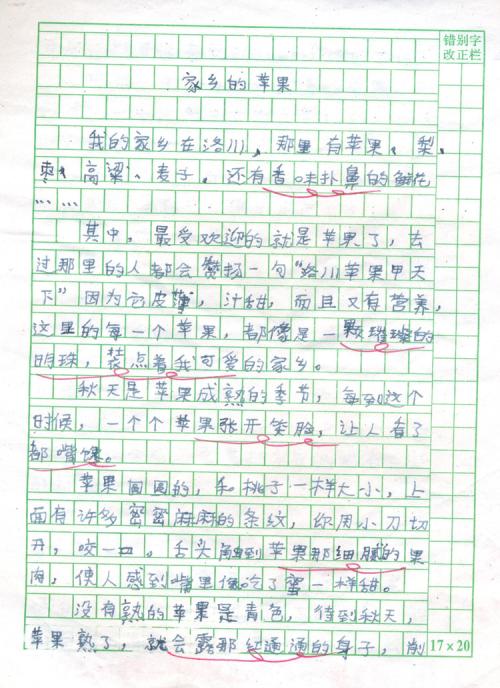 错别字
改正栏
家乡的苹果
我的家乡在洛川,那里有苹果、梨、
枣、高粱、麦子,还有香味扑鼻的鲜花
……
其中,最受欢迎的就是苹果了,去
过那里的人都会赞扬一句“洛川苹果甲天
下”因为它皮薄,汁甜,而且又有营养,
这里的每一个苹果,都像是一颗璀璨的
明珠,装点着我可爱的家乡。
秋天是苹果成熟的季节,每到这个
时候,一个个苹果张开笑脸,让人看了
都嘴馋。
苹果圆圆的,和桃子一样大小,上
面有许多密密麻麻的条纹,你用小刀切
开,咬一口,舌头触到苹果那细腻的果
肉,使人感到嘴里像吃了蜜一样甜。
没有熟的苹果是青色,待到秋天,
苹果熟了,就会露那红通通的身子,削
17×20